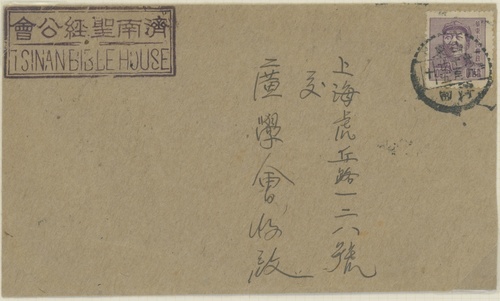 會公經聖南濟
TSINAN BIBLE HOUSE
上海虎丘路一二八號
交
廣學會收啟